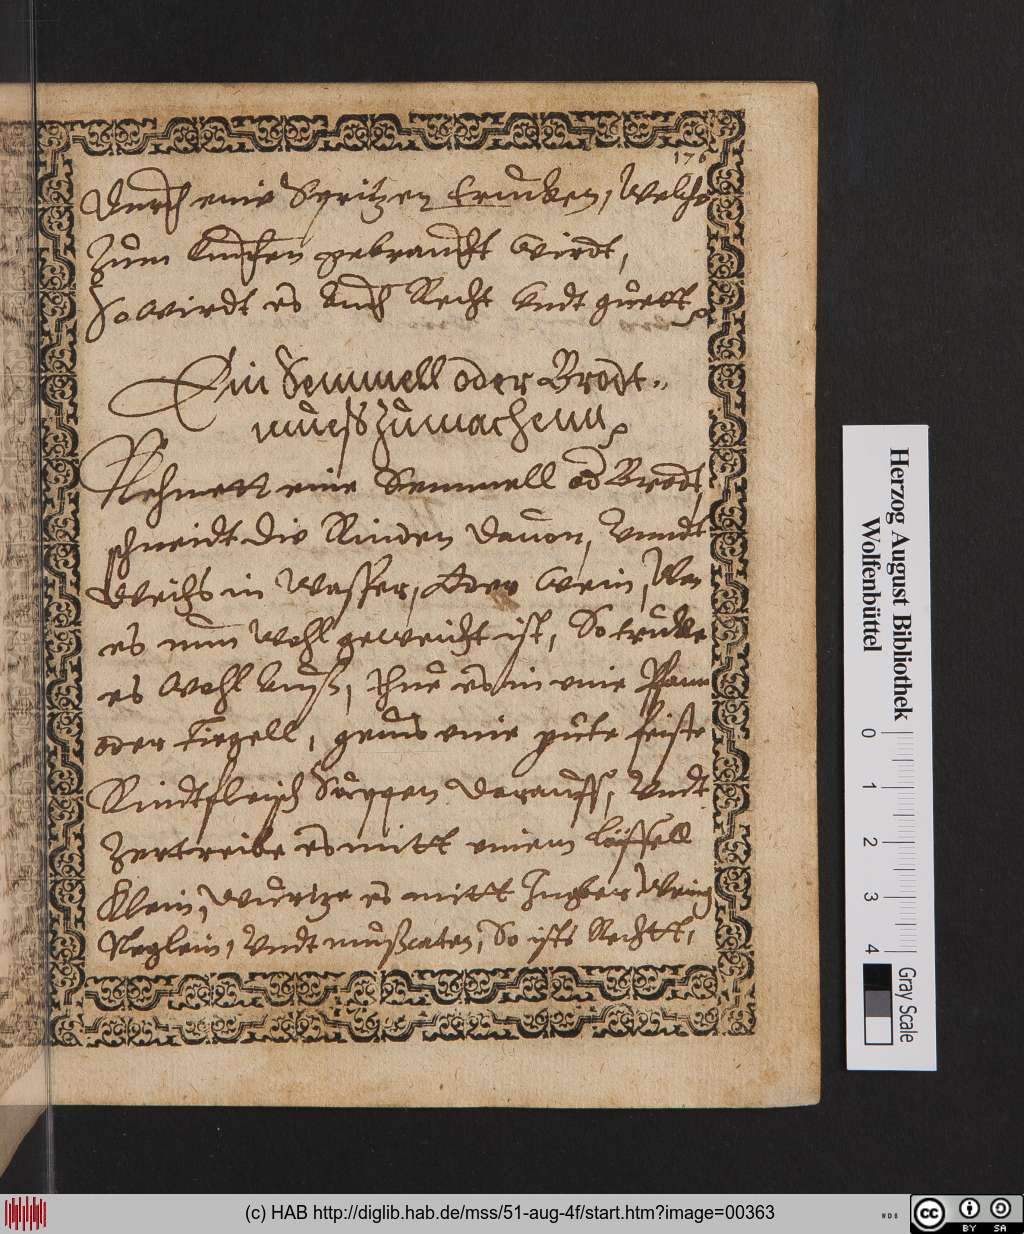 176
Durch eine Spritzen trucken, Welche
Zum Kuchen gebraucht wirdt,
So wirdt es Auch Recht Vndt guett
Ein Semmell oder Brodt„
mueß zumachenn
Nehmett eine Semmell od Brodt,
schneidt die Rinden dauon, Vnndt
Weichs in Wasser, Oder Wein, Wen
es nun Wohl geweicht ist, So trucke
es Wohl Auß, thue es in eine Pfann
oder tiegell, geus eine gute feiste
Rindtfleisch Suppen darauff, Vndt
Zertreibe es mitt einem löffell
Klein, Wurtze es mitt Ingber Wenig
Neglein, Vndt mußcaten, So ists Rechtt,
Herzog August Bibliothek
Wolfenbüttel
0 1 2 3 4
Gray Scale
(c) HAB http://diglib.hab.de/mss/51-aug-4f/start.htm?image=00363
WDB
cc BY SA